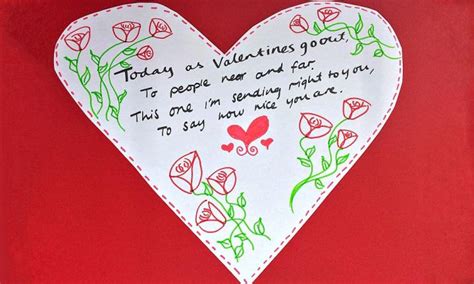 Today as Valentines go out,
To people near and far
This one I'm sending right to you,
To say how nice you are.